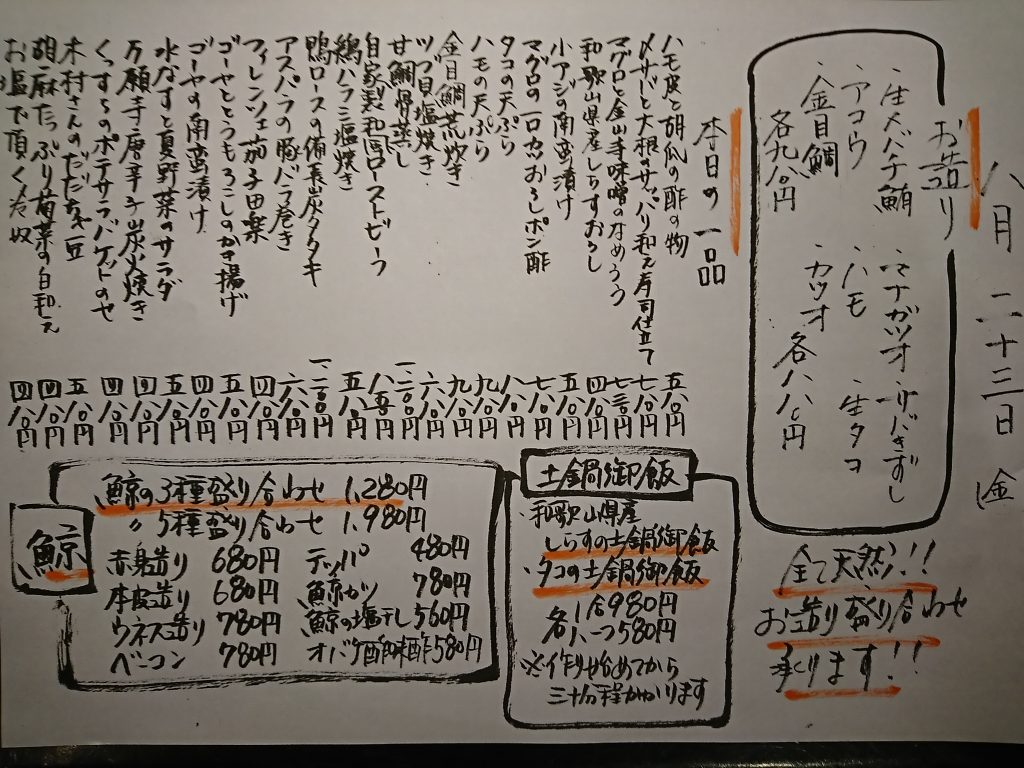 八月二十三日(金)
お造り
・生メバチ鮪 ・マナガツオ ・サバきずし
・アコウ ・ハモ ・生タコ
・金目鯛 ・カツオ 各八八〇円
各九八〇円
全て天然!!
お造り盛り合わせ
承ります!!
本日の一品
ハモ皮と胡瓜の酢の物 五八〇円
〆サバと大根のサッパリ和え寿司仕立て 七八〇円
マグロと金山寺味噌のなめろう 七三〇円
和歌山県産しらすおろし 四八〇円
小アジの南蛮漬け 五八〇円
マグロの一口カツおろしポン酢 七八〇円
タコの天ぷら 八八〇円
ハモの天ぷら 九八〇円
金目鯛荒炊き 九八〇円
ツブ貝塩焼き 六八〇円
甘鯛骨蒸し 一二〇〇円
自家製和風ローストビーフ 八五〇円
鶏ハラミ塩焼き 五八〇円
鴨ロースの備長炭タタキ 一二〇〇円
アスパラの豚バラ巻き 六八〇円
フィレンツェ茄子田楽 四八〇円
ゴーヤととうもろこしのかき揚げ 五八〇円
ゴーヤの南蛮漬け 四八〇円
水なすと夏野菜のサラダ 五八〇円
万願寺唐辛子炭火焼き 四八〇円
ポテサラバケットのせ 四八〇円
木村さんのだだちゃ豆 五八〇円
胡麻たっぷり菊菜の白和え 四八〇円
お塩で頂く冷奴 四八〇円
土鍋御飯
・和歌山県産
しらすの土鍋御飯
・タコの土鍋御飯
各 1合980円
ハーフ580円
※作り始めてから
三十分程かかります
鯨
鯨の3種盛り合わせ 1,280円
〃5種盛り合わせ 1,980円
赤身造り 680円 テッパ 480円
本皮造り 680円 鯨カツ 780円
ウネス造り 780円 鯨の塩干し 560円
ベーコン 780円 オバケ酢味噌 580円